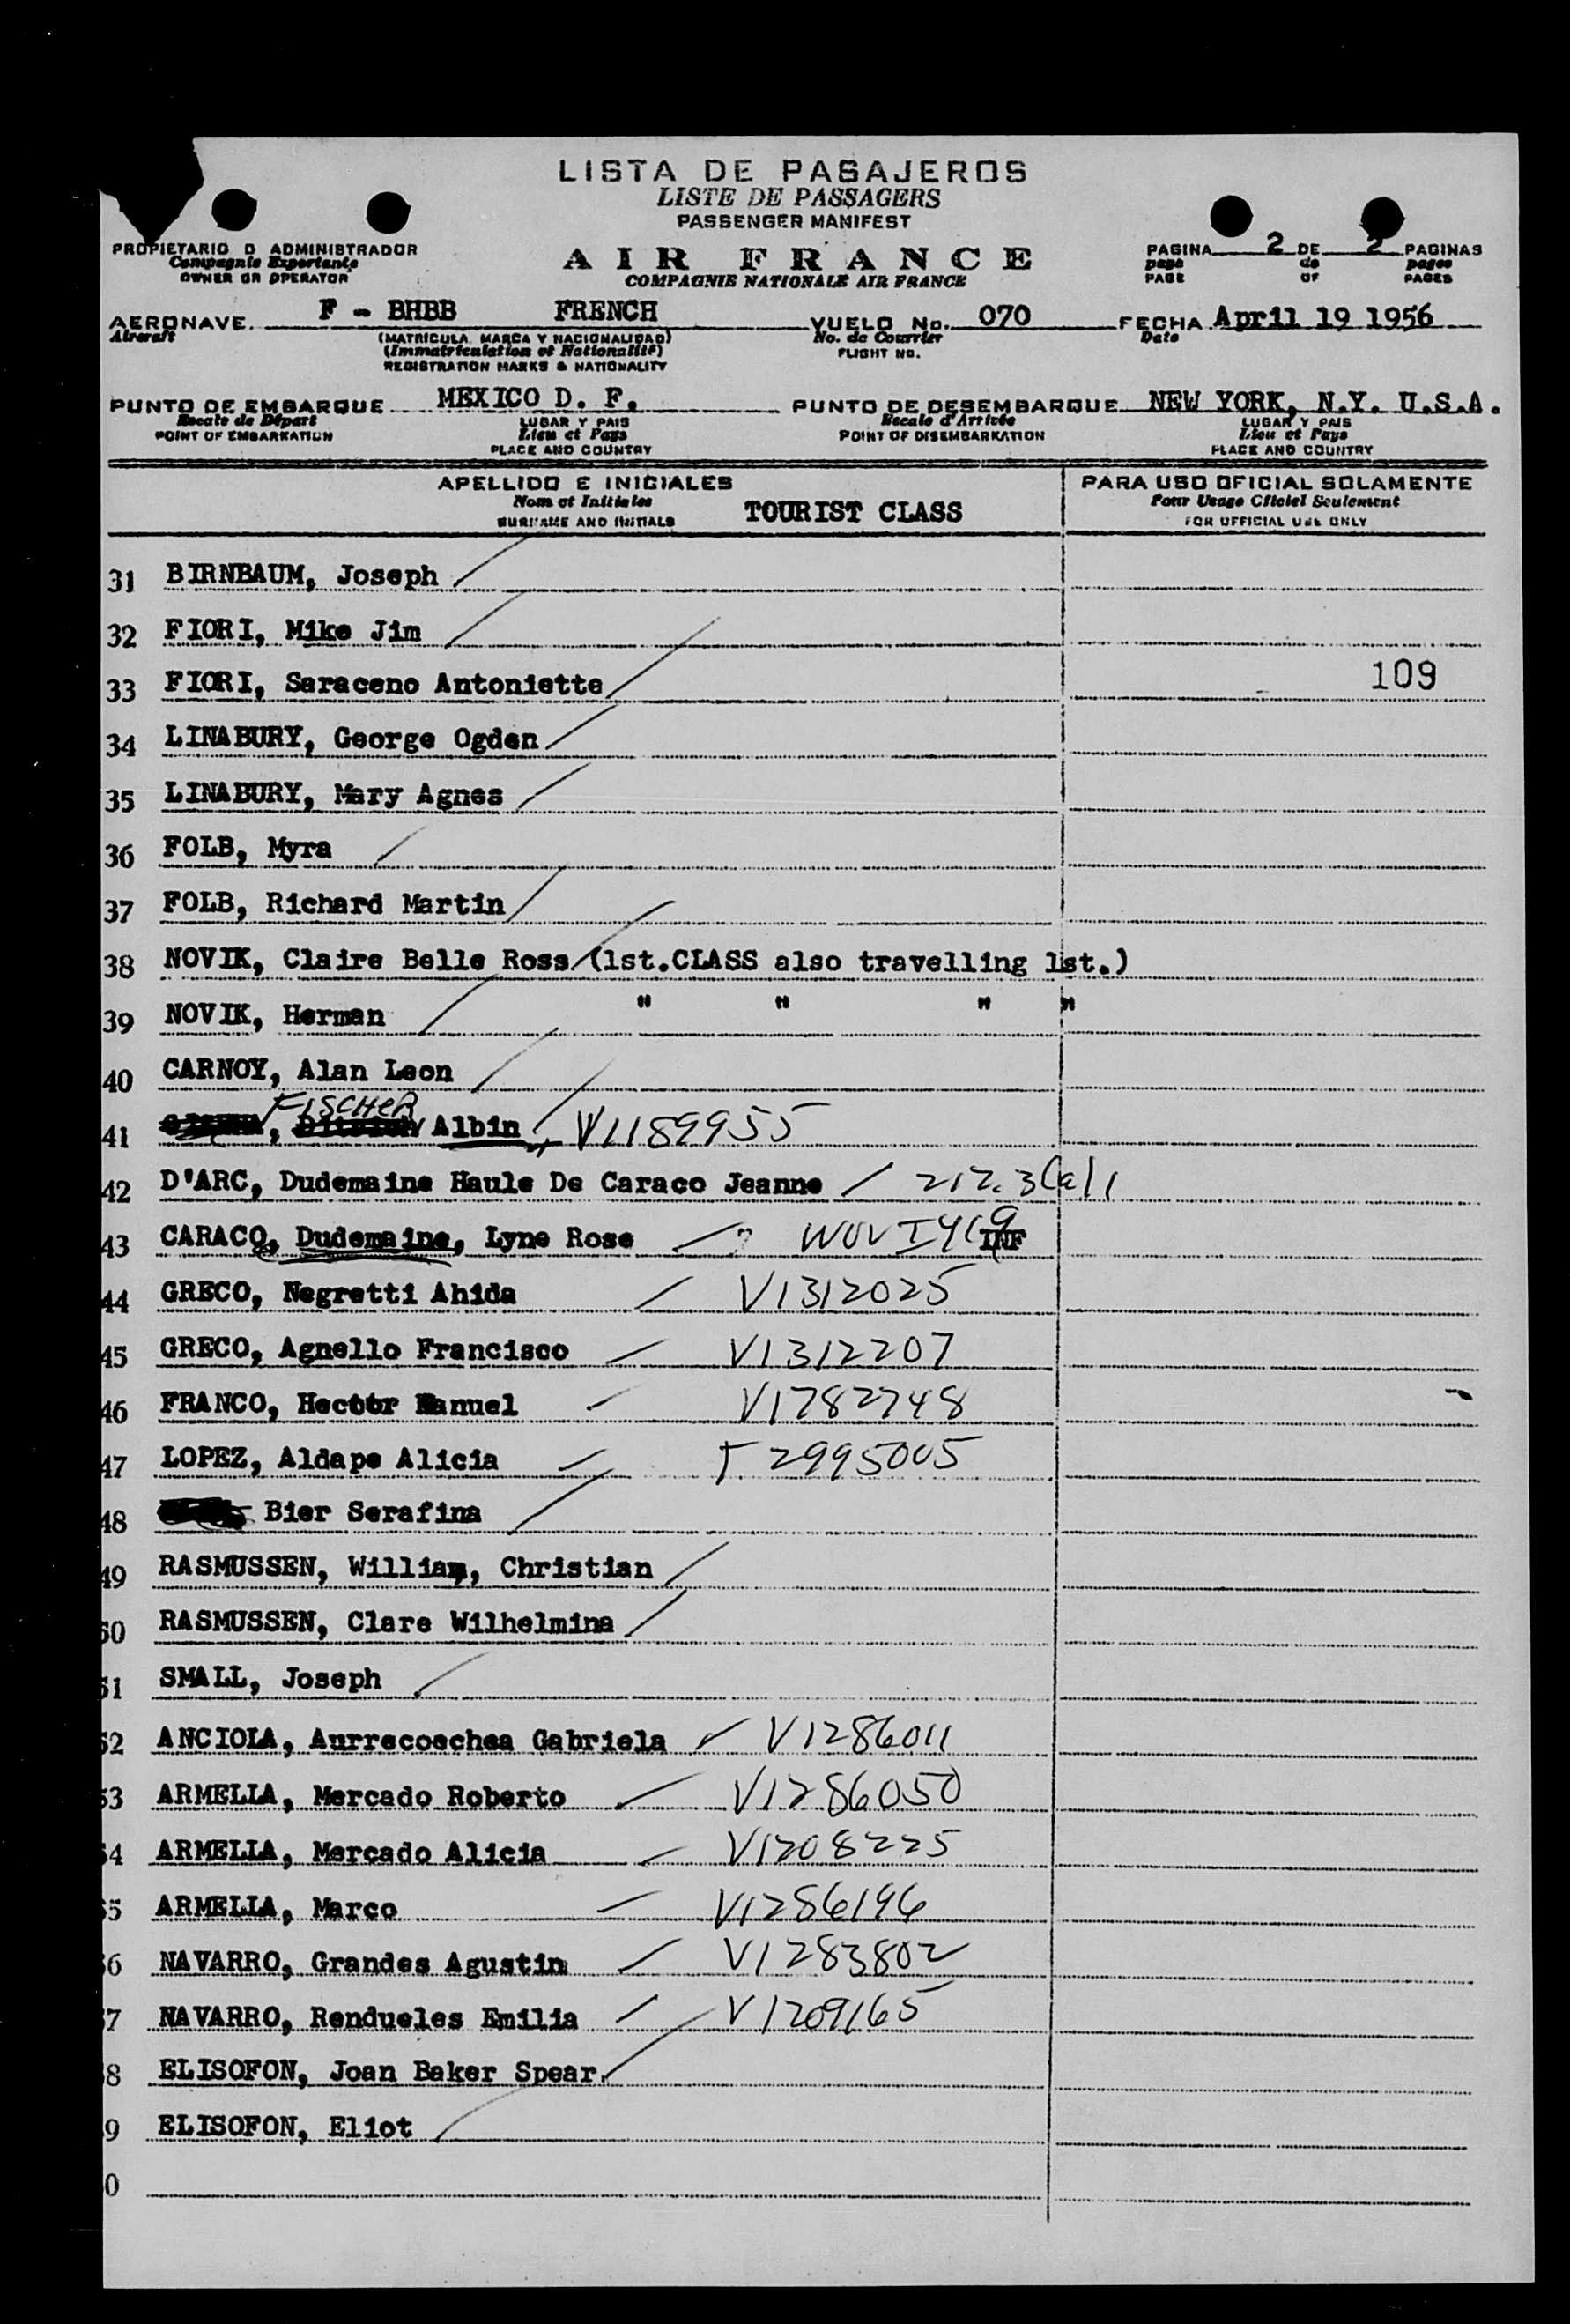 LISTA DE PASAJEROS
LISTE DE PASSAGERS
PASSENGER MANIFEST
PROPIETARIO O ADMINISTRADOR
Compagnie Exportante
OWNER OR OPERATOR
AIR FRANCE
COMPAGNIE NATIONALE AIR FRANCE
PAGINA 2 DE 2 PAGINAS
page de pages
PAGE OF PAGES
AERONAVE. F - BHBB FRENCH VUELO No. 070 FECHA April 19 1956
Aircraft (MATRICULA, MARCA Y NACIONALIDAD) No. de Courrier Date
(Immatriculation et Nationalité) FLIGHT NO.
REGISTRATION MARKS & NATIONALITY
PUNTO DE EMBARQUE MEXICO D. F. PUNTO DE DESEMBARQUE NEW YORK, N.Y. U.S.A.
Escale de Départ LUGAR Y PAIS Escale d'Arrivée LUGAR Y PAIS
POINT OF EMBARKATION Lieu et Pays POINT OF DISEMBARKATION Lieu et Pays
PLACE AND COUNTRY PLACE AND COUNTRY
APELLIDO E INICIALES PARA USO OFICIAL SOLAMENTE
Nom et Initiales TOURIST CLASS Pour Usage Officiel Seulement
SURNAME AND INITIALS FOR OFFICIAL USE ONLY
31 BIRNBAUM, Joseph
32 FIORI, Mike Jim
33 FIORI, Saraceno Antoniette 109
34 LINABURY, George Ogden
35 LINABURY, Mary Agnes
36 FOLB, Myra
37 FOLB, Richard Martin
38 NOVIK, Claire Belle Ross (1st.CLASS also travelling 1st.)
39 NOVIK, Herman " " " "
40 CARNOY, Alan Leon
FISCHER
41 Albin V1189955
42 D'ARC, Dudemaine Haule De Caraco Jeanne
43 CARACO, Dudemaine, Lyne Rose INF
44 GRECO, Negretti Ahida V1312025
45 GRECO, Agnello Francisco V1312207
46 FRANCO, Hector Manuel V1782748
47 LOPEZ, Aldape Alicia T 2995005
48 Bier Serafina
49 RASMUSSEN, William, Christian
50 RASMUSSEN, Clare Wilhelmina
51 SMALL, Joseph
52 ANCIOLA, Aurrecoechea Gabriela V1286011
53 ARMELLA, Mercado Roberto V1286050
54 ARMELLA, Mercado Alicia V1208225
55 ARMELLA, Marco V1286196
56 NAVARRO, Grandes Agustin V1283802
57 NAVARRO, Rendueles Emilia V1209165
8 ELISOFON, Joan Baker Spear.
9 ELISOFON, Eliot
0